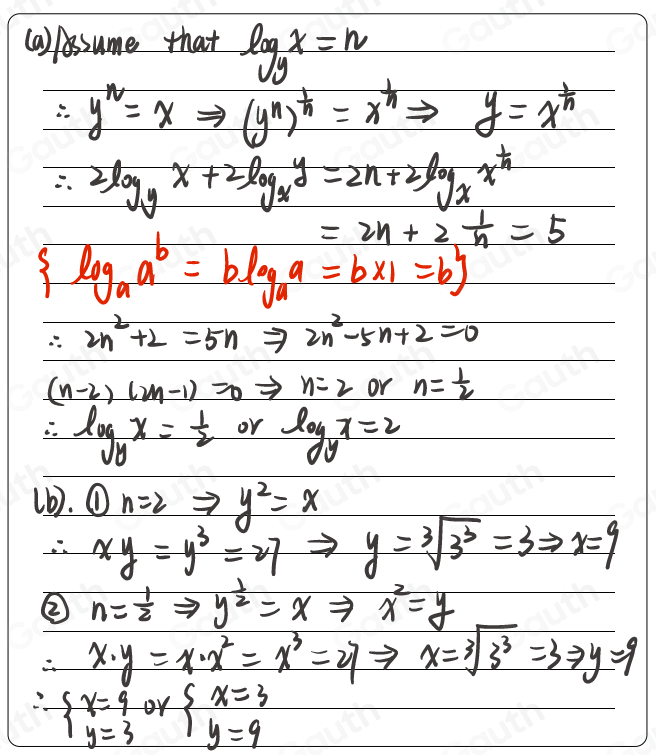 (a) Assume that log_y x = n
∴ y^n = x ⇒ (y^n)^{1/n} = x^{1/n} ⇒ y = x^{1/n}
∴ 2log_y x + 2log_x y = 2n + 2log_x x^{1/n}
= 2n + 2 1/n = 5
{ log_a a^b = b log_a a = b×1 = b }
∴ 2n^2 + 2 = 5n ⇒ 2n^2 - 5n + 2 = 0
(n-2) (2n-1) = 0 ⇒ n = 2 or n = 1/2
∴ log_y x = 1/2 or log_y x = 2
(b). ① n = 2 ⇒ y^2 = x
∴ xy = y^3 = 27 ⇒ y = ∛(3^3) = 3 ⇒ x = 9
② n = 1/2 ⇒ y^{1/2} = x ⇒ x^2 = y
∴ x·y = x·x^2 = x^3 = 27 ⇒ x = ∛(3^3) = 3 ⇒ y = 9
∴ { x = 9 or { x = 3
y = 3 y = 9